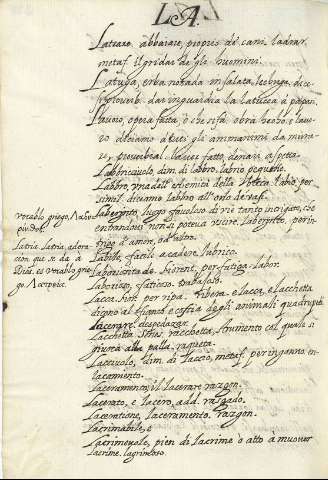 LA.
Latrare. abbaiare, proprio de cani. ladrar.
metaf. il gridar de gli huomini.
Latuga, erba notada in salata, lechuga. dicesi
proverb. dar in guardia la latuca a paperi.
Lavoro, opera fatta, o che si fa. obra hecho. e lavoro
diciamo a tutti gli ammattoni da murare,
proverbial. lavoro fatto, denari aspetta.
Labbricciuolo, dim. di labbro. labrio pequeño.
Labbro, una dell' estremità della bocca. labio, per
simil. diciamo labbro all' orlo de vasi.
vocablo griego, Λαβυ
laberynto, luogo fabuloso di vie tanto intrigate, che
entrandovi non si poteva uscire. laberynto, per in
trigo d'amor, ed' altro.
Latria. latria, adora
cion que se da à
Dios. es vocablo grie
go. Λατρεία.
Labile, facile a cadere. lubrico.
Laboriosità de. fiorent. per fatiga. labor.
Laborioso, fatigoso. trabajoso.
Lacca. bok per ripa. ribera. e lacca, e lacchetta
dicono al fianco e coscia degli animali quadrupedi.
lacerare. despedazar.
Lacchetta, racchetta, strumento col quale si
giuoca alla palla, raqueta.
Lacciuolo, dim. di laccio, metaf. per inganno. en
lacamento.
Laceramento, il lacerare. rasgon.
Lacerato, e lacero, add. rasgado.
Laceratione, laceramento. rasgon.
Lacrimabile, e
Lacrimevole, pien di lacrime o atto à muover
lacrime. lagrimoso.